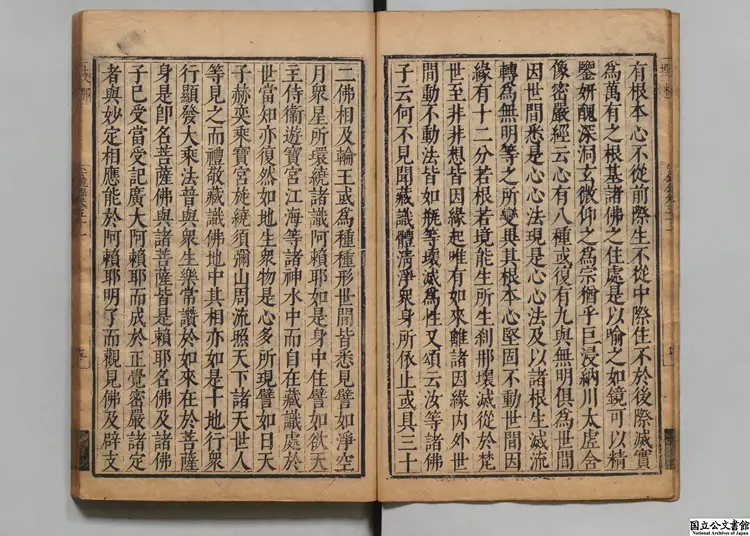 有根本心不從前際生不從中際住不於後際滅實
為萬有之根基諸佛之住處是以喻之如鏡可以精
鑒妍醜深洞玄微仰之為宗猶乎巨浸納川太虛含
像密嚴經云心有八種或復有九與無明俱為世間
因世間悉是心心法現是心心法及以諸根生滅流
轉為無明等之所變異其根本心堅固不動世間因
緣有十二分若根若境能生所生剎那壞滅從於梵
世至非非想皆因緣起唯有如來離諸因緣內外世
間動不動法皆如瓶等壞滅為性又頌云汝等諸佛
子云何不見聞藏識體清淨眾身所依止或具三十
二佛相及輪王或為種種形世間皆悉見譬如淨空
月眾星所環繞諸識阿賴耶如是身中住譬如欲天
主侍衛遊寶宮江海等諸神水中而自在藏識處於
世當知亦復然如地生眾物是心多所現譬如日天
子赫奕乘寶宮旋繞須彌山周流照天下諸天世人
等見之而禮敬藏識佛地中其相亦如是十地行眾
行顯發大乘法普與眾生樂常讚於如來在於菩薩
身是即名菩薩佛與諸菩薩皆是賴耶名佛及諸佛
子已受當受記廣大阿賴耶而成於正覺密嚴諸定
者與妙定相應能於阿賴耶明了而觀見佛及辟支
国立公文書館
National Archives of Japan